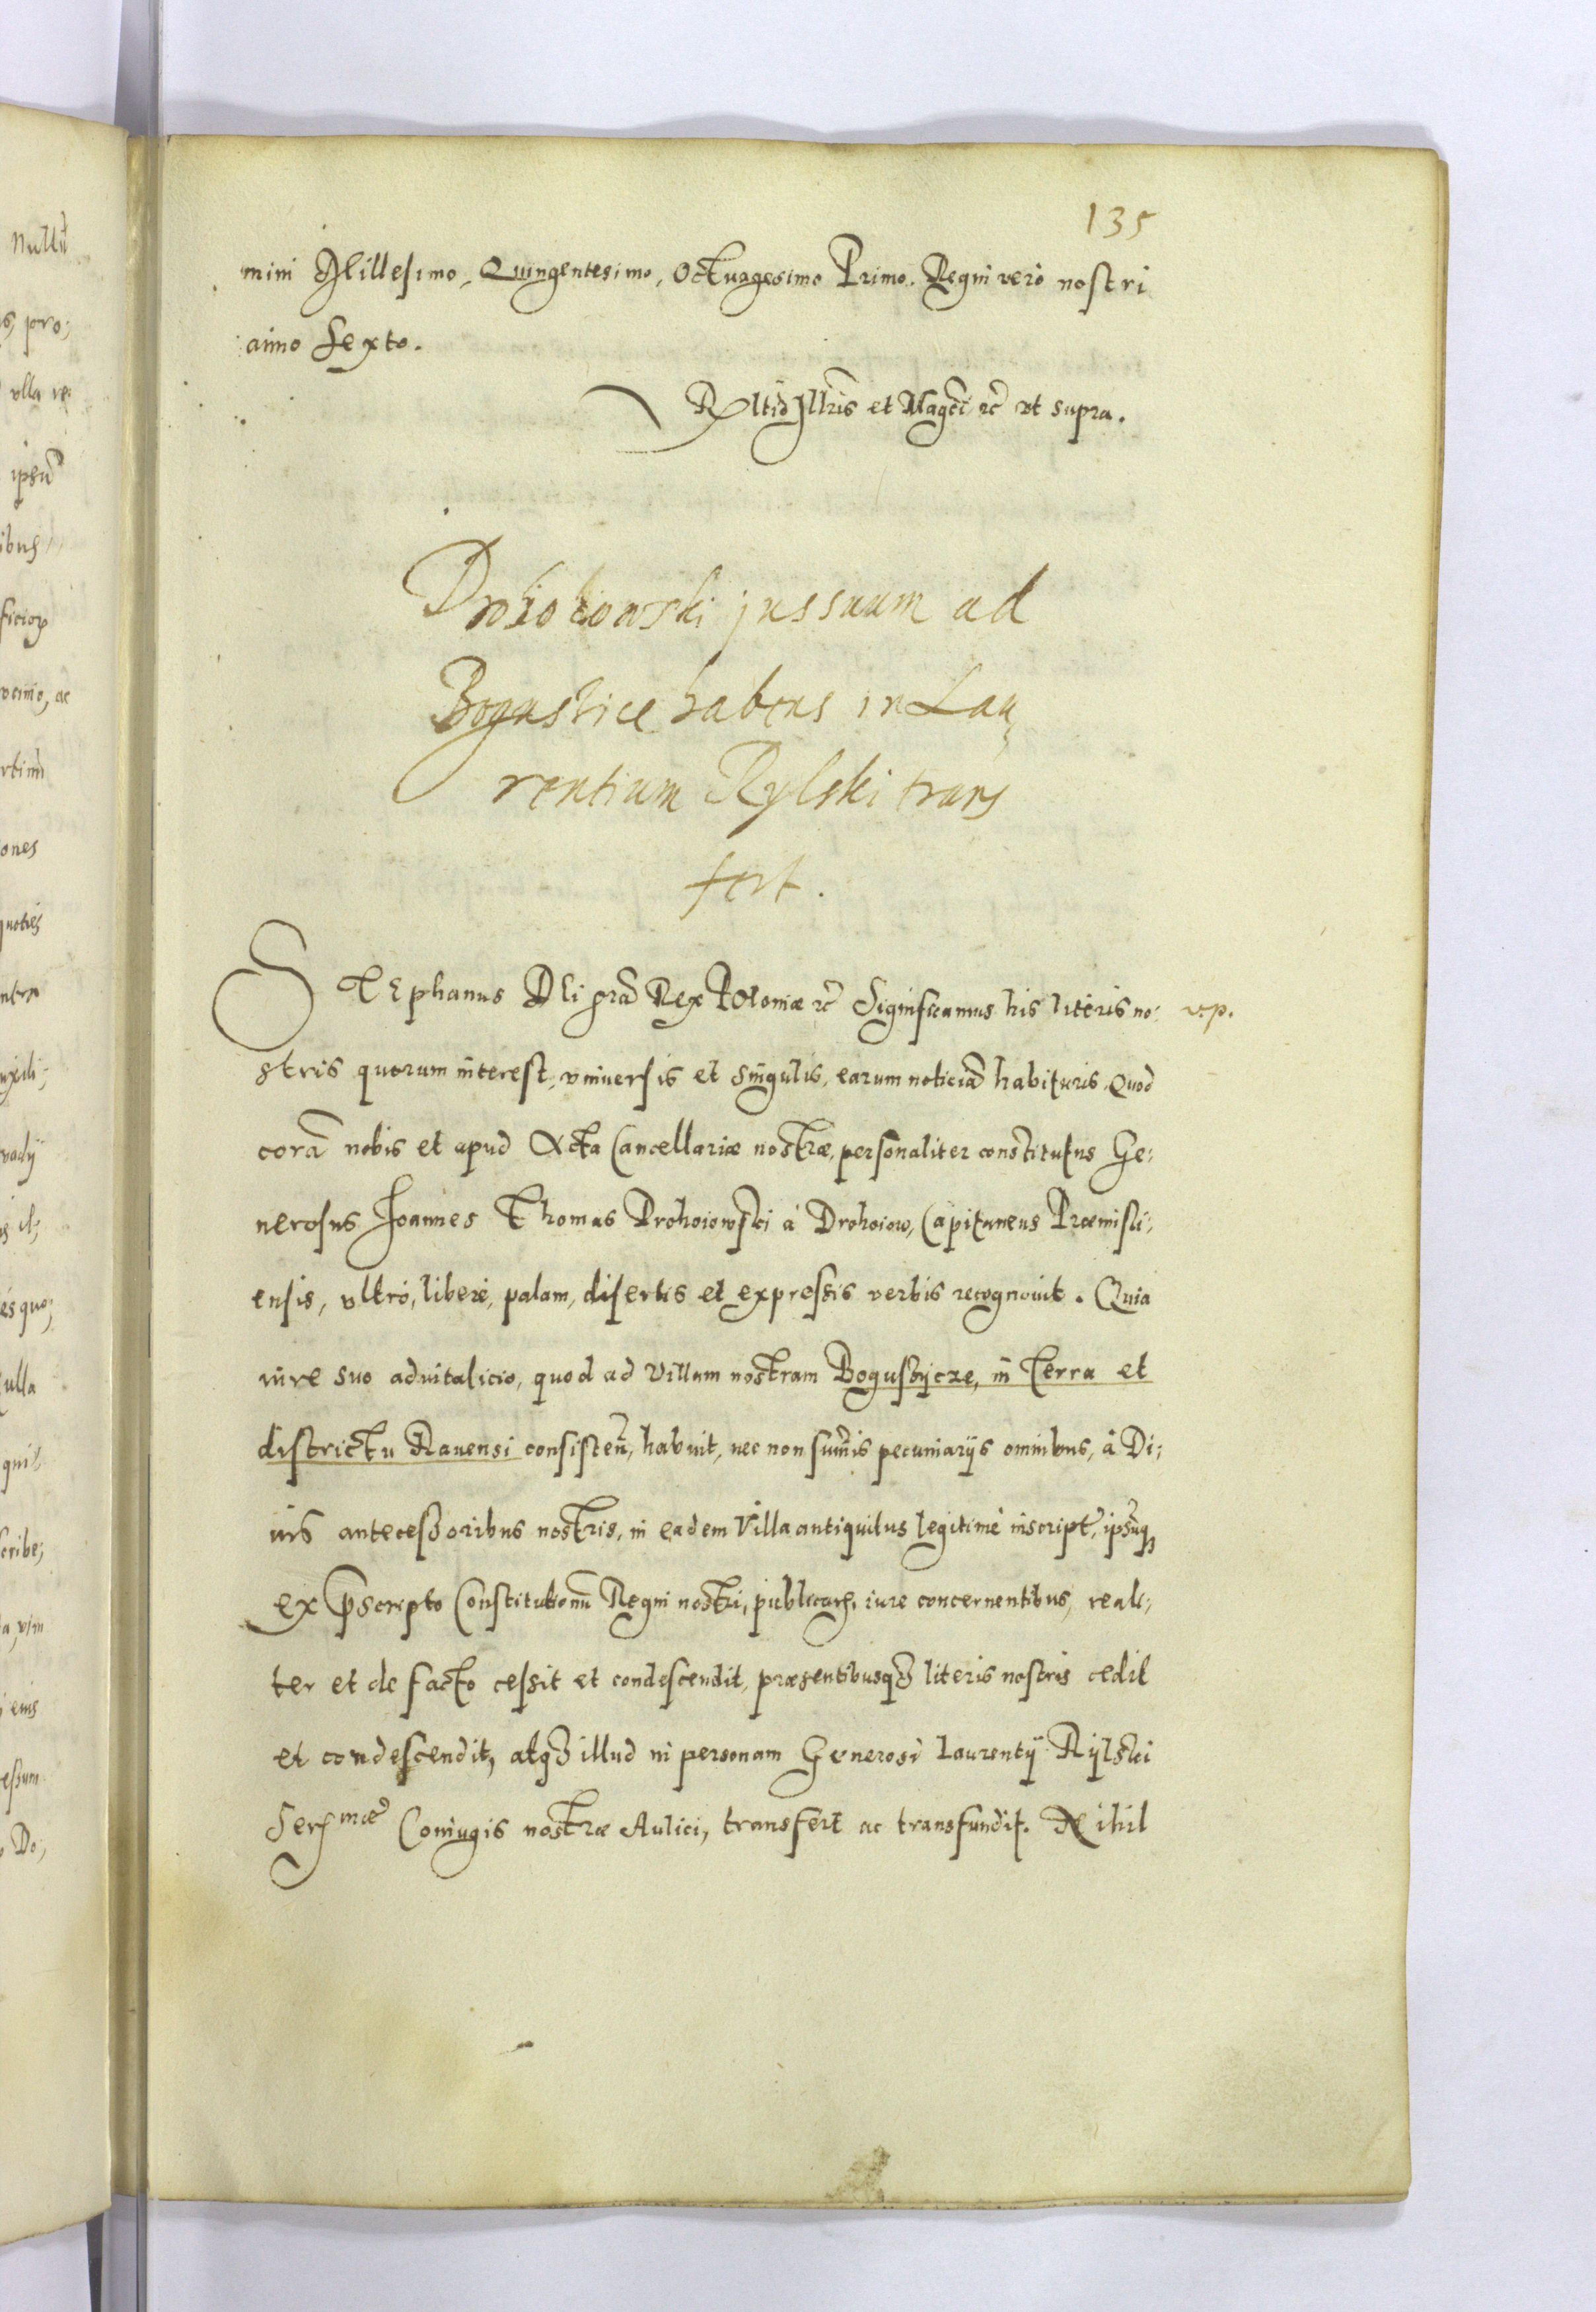 135
mini Millesimo, Quingentesimo, Octuagesimo Primo. Regni verò nostri
anno Sexto.
Rltio Illris et Magci rc vt supra.
Drohoiowski jus suum ad
Bogustice habens in Lau
rentium Rylski trans
fert.
STEphanus Dei gra Rex Poloniæ rc Significamus his literis no: v.p.
stris quorum interest, vniuersis et singulis, earum noticia habituris, Quod
cora nobis et apud Acta Cancellariæ nostræ, personaliter constitutus Ge;
nerosus Joannes Thomas Drohoiowski à Drohoiow, Capitaneus Præmisli;
ensis, vltrò, liberè, palam, disertis et expressis verbis recognouit. Quia
iure suo aduitalicio, quod ad Villam nostram Bogustycze, in Terra et
districtu Rauensi consisten, habuit, nec non sumis pecuniarijs omnibus, à Di;
uis antecessoribus nostris, in eadem Villa antiquitus legitimè inscript, ipsumq
ex pscripto Constitutionu Regni nostri, publicarq, iure concernentibus, reali;
ter et de facto cessit et condescendit, præsentibusq literis nostris cedit
et condescendit, atq illud in personam Generosi Laurentij Rylski
Sermæ Coniugis nostræ Aulici, transfert ac transfundit. Nihil